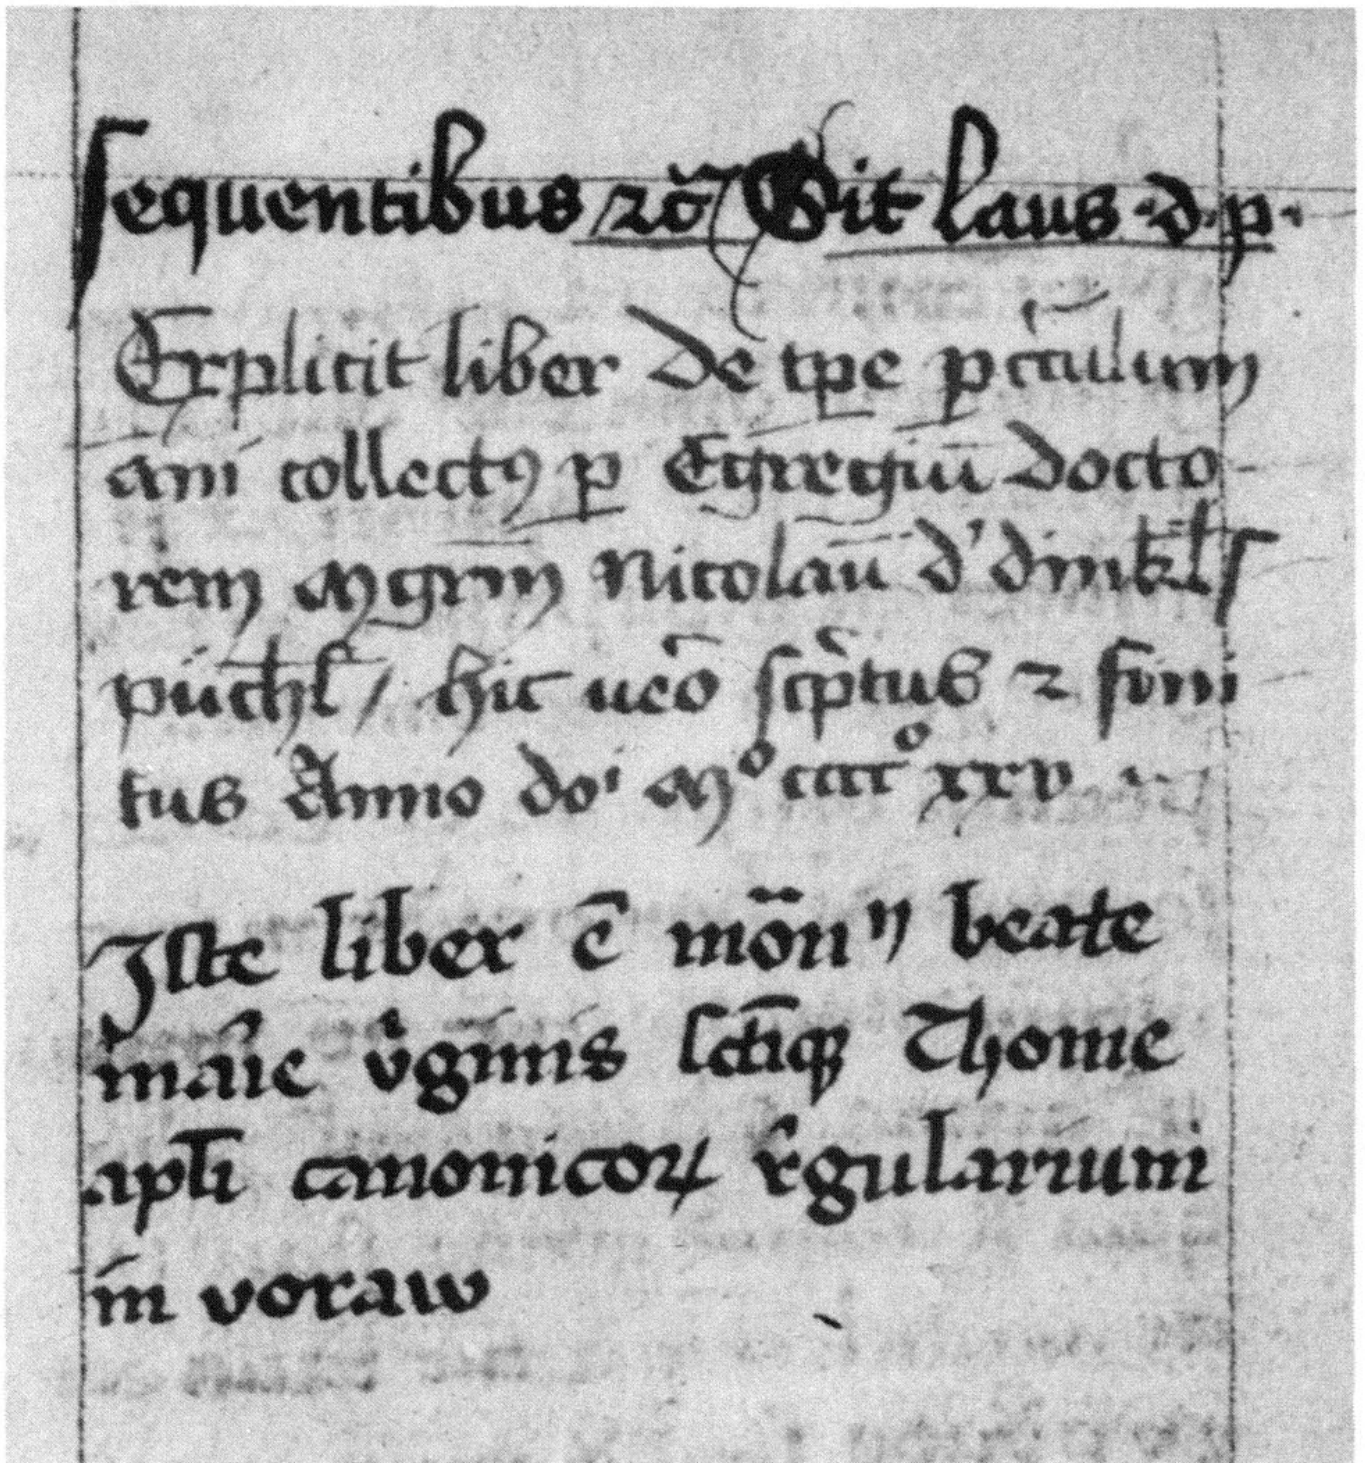 sequentibus ⁊cͣ Sit laus ·d·p·
Explicit liber De tp̅e p circulum
an̅i collectꝯ ꝑ Egregiu̅ docto
rem mgrm̅ Nicolau̅ d' dinkl̅s
pu̅chl̅ / hic u̅o sc̅ptus ⁊ fini
tus Anno doⁱ Mº ccccº xxv
Iste liber e̅ mo̅n ij beate
ma̅ie v̇ginis sc̅tiqꝫ Thome
apl̅i canonicoꝝ r̅gularium
in voraw